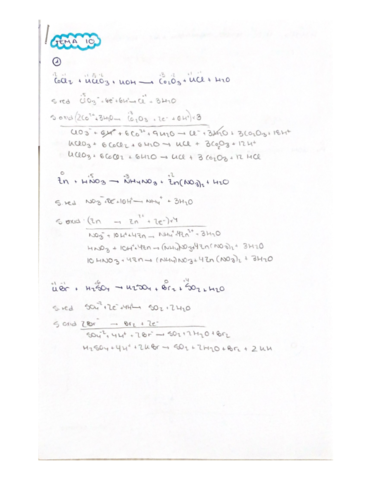 TEMA 10
①
CoCl2 + KClO3 + KOH → Co2O3 + KCl + H2O
S red ClO3⁻ + 6e⁻ + 6H⁺ → Cl⁻ + 3H2O
S oxid (2Co²⁺ + 3H2O → Co2O3 + 2e⁻ + 6H⁺)·3
ClO3⁻ + 6H⁺ + 6Co²⁺ + 9H2O → Cl⁻ + 3H2O + 3Co2O3 + 18H⁺
KClO3 + 6CoCl2 + 6H2O → KCl + 3Co2O3 + 12H⁺
KClO3 + 6CoCl2 + 6H2O → KCl + 3Co2O3 + 12HCl
Zn + HNO3 → NH4NO3 + Zn(NO3)2 + H2O
S red NO3⁻ + 8e⁻ + 10H⁺ → NH4⁺ + 3H2O
S oxid (Zn → Zn²⁺ + 2e⁻)·4
NO3⁻ + 10H⁺ + 4Zn → NH4⁺ + 4Zn²⁺ + 3H2O
HNO3 + 10H⁺ + 4Zn → (NH4)NO3 + 4Zn(NO3)2 + 3H2O
10HNO3 + 4Zn → (NH4)NO3 + 4Zn(NO3)2 + 3H2O
KBr + H2SO4 → K2SO4 + Br2 + SO2 + H2O
S red SO4⁻² + 2e⁻ + 4H⁺ → SO2 + 2H2O
S oxid 2Br⁻ → Br2 + 2e⁻
SO4⁻² + 4H⁺ + 2Br⁻ → SO2 + 2H2O + Br2
H2SO4 + 4H⁺ + 2KBr → SO2 + 2H2O + Br2 + 2